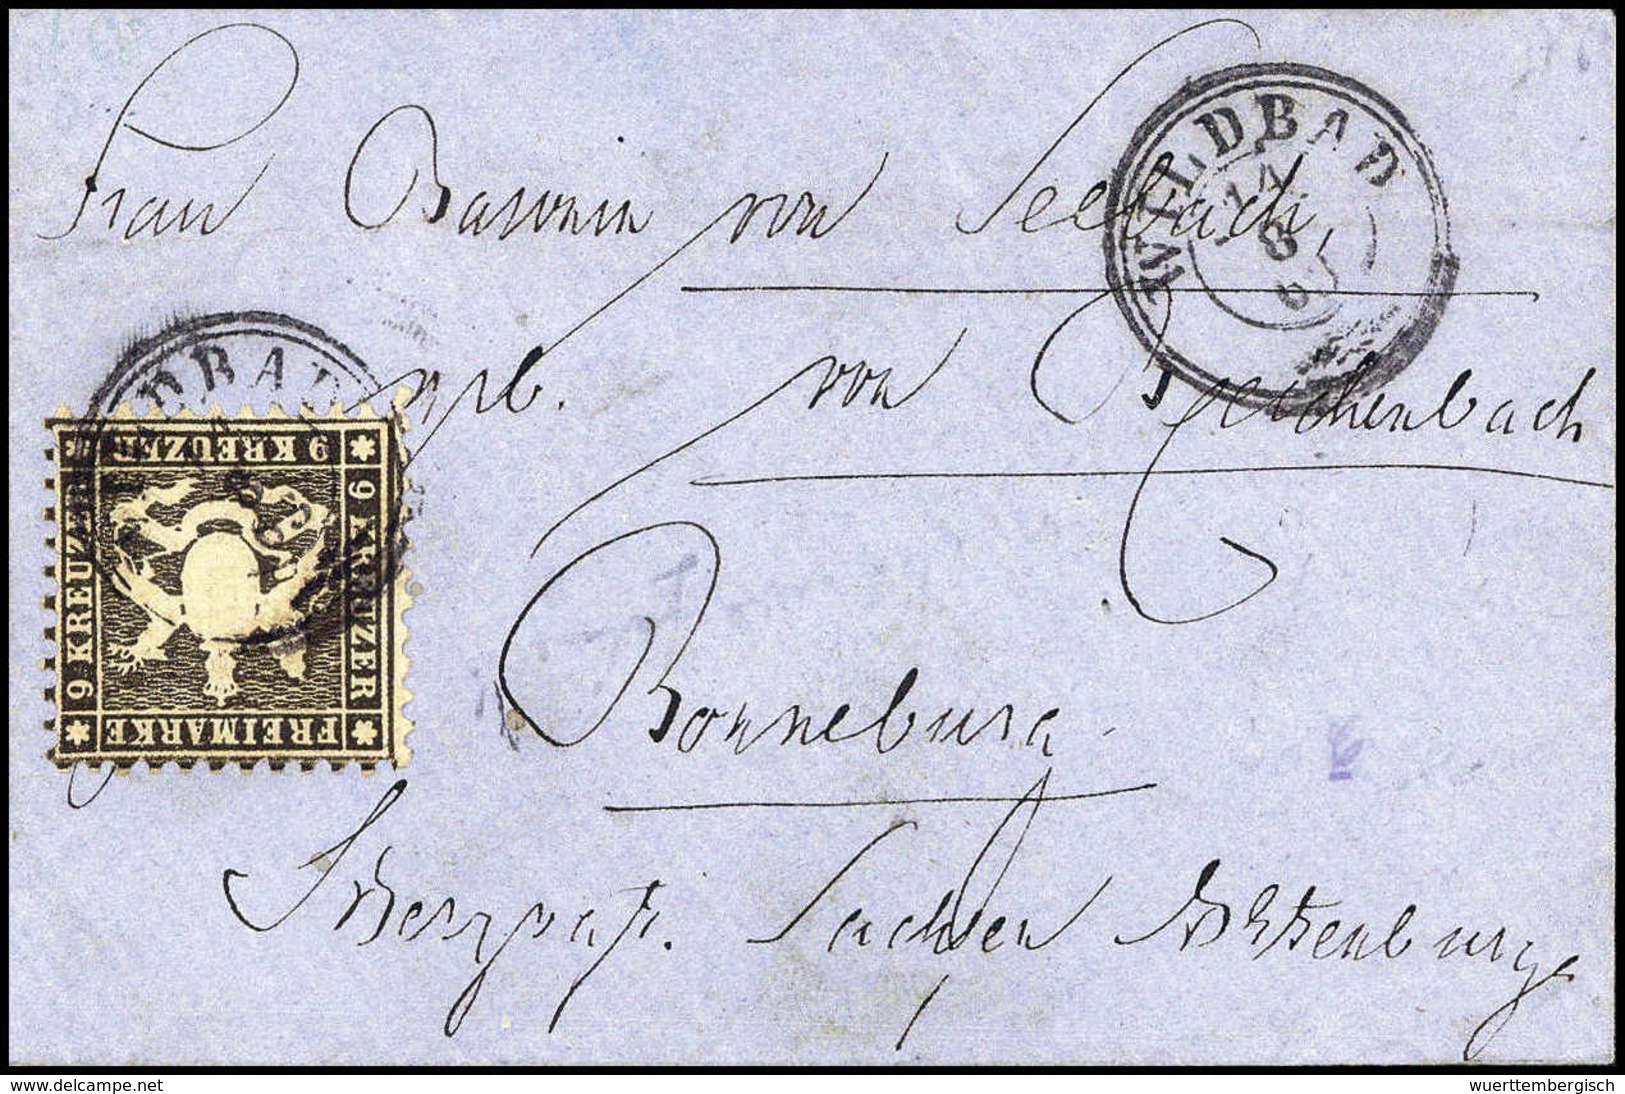 Frau Baronin von Seebach,
WILDBAD
14
8
6
geb. von Beuchenbach
DBAD
8
63
9 KREUZER
9 KREUZER
9 KREUZER
FREIMARKE
Ronneburg
Herzogth. Sachsen Altenburg
www.delcampe.net
wuerttembergisch